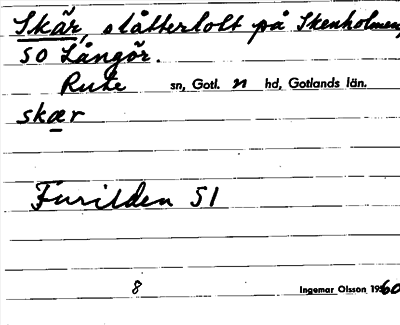 Skär, slåtterholt på Skenholmen,
SO Långör.
Rute sn, Gotl. n hd, Gotlands län.
skær
Furilden 51
8 Ingemar Olsson 1960